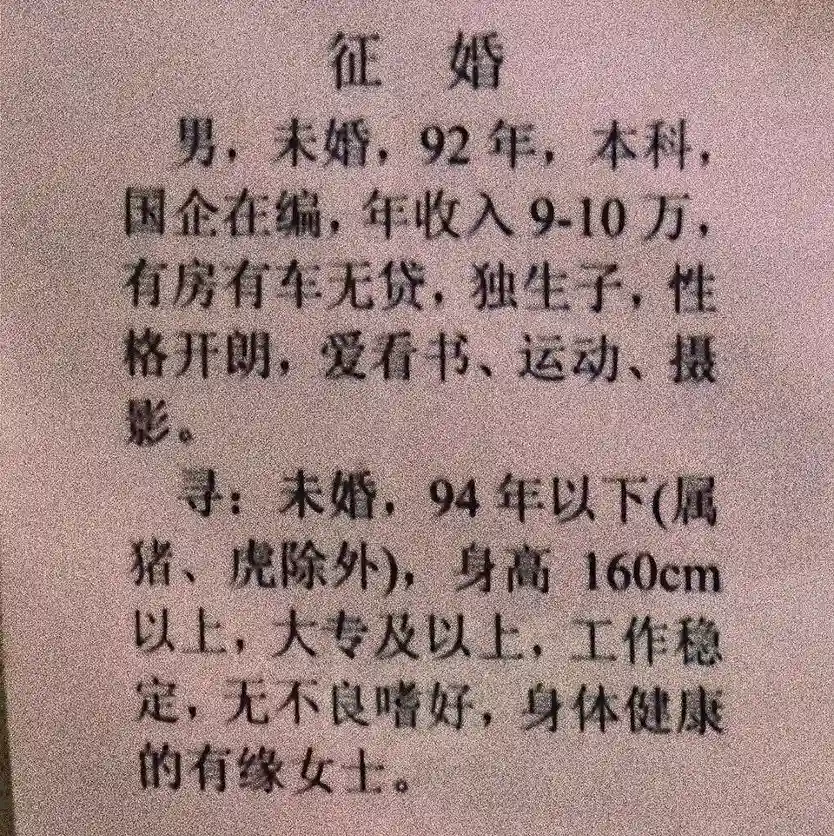 征 婚
男，未婚，92年，本科，
国企在编，年收入9-10万，
有房有车无贷，独生子，性
格开朗，爱看书、运动、摄
影。
寻：未婚，94年以下(属
猪、虎除外)，身高 160cm
以上，大专及以上，工作稳
定，无不良嗜好，身体健康
的有缘女士。